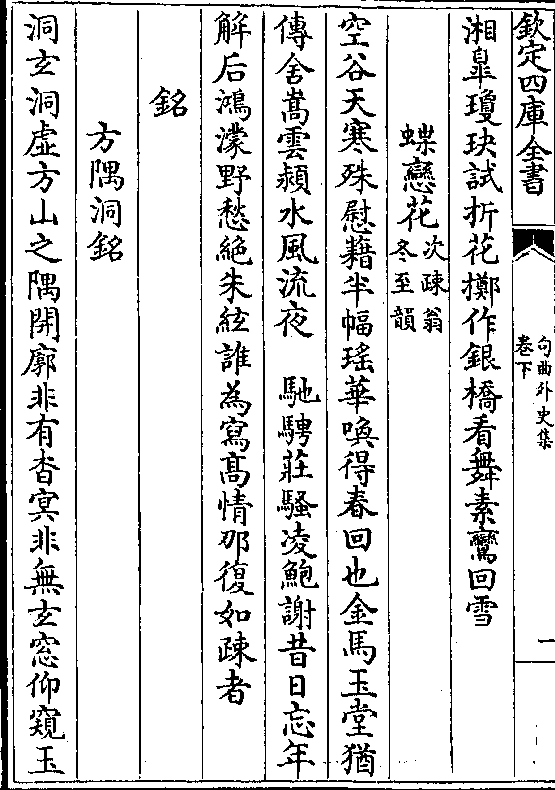 欽定四庫全書
句曲外史集
卷下
一
湘臯瓊玦試折花擲作銀橋看舞素鸞回雪
蝶戀花次疎翁冬至韻
空谷天寒殊慰藉半幅瑶華喚得春回也金馬玉堂猶
傳舍嵩雲潁水風流夜　馳騁莊騷凌鮑謝昔日忘年
解后鴻濛野愁絶朱絃誰為寫髙情那復如疎者
銘
方隅洞銘
洞玄洞虚方山之隅開廓非有杳冥非無玄窓仰窺玉